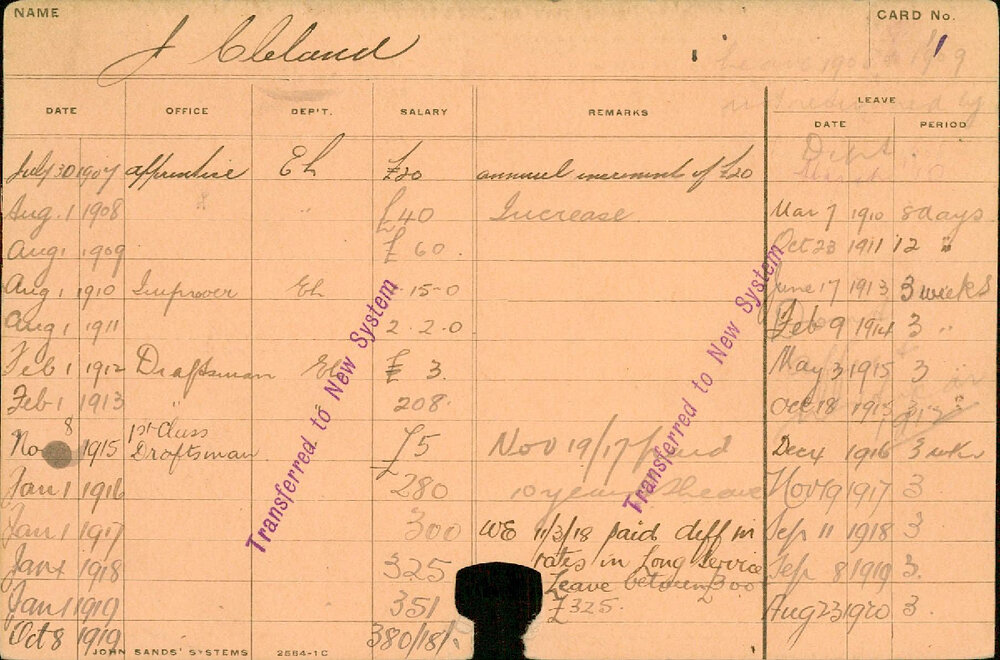 NAME
CARD No.
J Cleland
1
DATE OFFICE DEP'T. SALARY REMARKS LEAVE
DATE PERIOD
July 30 1907 apprentice Eh £20 annual increment of £20
Aug. 1 1908 " " £40 Increase Mar 7 1910 8 days
Aug 1 1909 £ 60. Oct 23 1911 12 "
Aug 1 1910 Improver Eh 15-0 June 17 1913 3 weeks
Aug 1 1911 2.2.0 Feb 9 1914 3 "
Feb 1 1912 Draftsman £ 3. May 3 1915 3
Feb 1 1913 208. Oct 18 1915 3
Nov 8 1915 1st Class Draftsman £5 Nov 19/17 paid Dec 4 1916 3 wks
Jan 1 1916 £280 10 years leave Nov 19 1917 3
Jan 1 1917 300 WE 11/3/18 paid diff in Sep 11 1918 3
Jan 1 1918 325 rates in Long Service Sep 8 1919 3.
Leave between 300
Jan 1 1919 351 £325. Aug 23 1920 3.
Oct 8 1919 380/18/-
Transferred to New System
Transferred to New System
JOHN SANDS' SYSTEMS 2564-1C